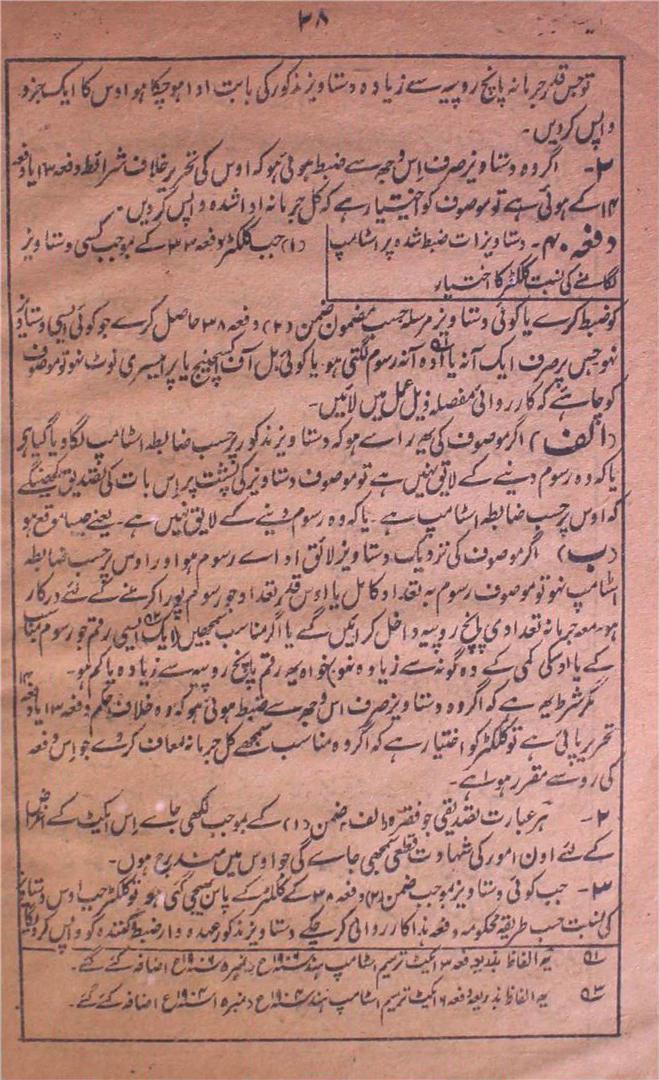 ۲۸
توجس قدر جرمانہ پانچ روپیہ سے زیادہ دستاویز مذکور کی بابت ادا ہوچکا ہو اوس کا ایک جزو
واپس کردیں۔
۲- اگر وہ دستاویز صرف اس وجہ سے ضبط ہوئی ہو کہ اوس کی تحریر خلاف شرائط دفعہ ۱۳ یا دفعہ
۱۴ کے ہوئی ہے تو موصوف کو اختیار ہے کہ کل جرمانہ ادا شدہ واپس کردیں۔
دفعہ ۴۰۔ دستاویزات ضبط شدہ پر اسٹامپ
لگانے کی نسبت کلکٹر کا اختیار
(۱) جب کلکٹر دفعہ ۳۳ کے بموجب کسی دستاویز
کو ضبط کرے یا کوئی دستاویز مرسلہ حسب مضمون ضمن (۲) دفعہ ۳۸ حاصل کرے جو کوئی ایسی دستاویز
نہو جس پر صرف ایک آنہ یا آدہ آنہ رسوم لگتی ہو یا کوئی بل آف اکسچینج یا پرامیسری نوٹ نہو تو موصوف
کو چاہئے کہ کارروائی مفصلہ ذیل عمل میں لائیں۔
(الف) اگر موصوف کی یہ راے ہو کہ دستاویز مذکور پر حسب ضابطہ اسٹامپ لگا دیا گیا ہے
یا کہ وہ رسوم دینے کے لایق نہیں ہے تو موصوف دستاویز کی پشت پر اس بات کی تصدیق لکھینگے
کہ اوس پر حسب ضابطہ اسٹامپ ہے۔ یا کہ وہ رسوم دینے کے لایق نہیں ہے۔ یعنے جیسا موقع ہو
(ب) اگر موصوف کی نزدیک دستاویز لائق اداے رسوم ہو اور اوس پر حسب ضابطہ
اسٹامپ نہو تو موصوف رسوم بہ تعداد کامل یا اوس قدر تعداد جو رسوم پورا کرنے کے لئے درکار
ہو۔ معہ جرمانہ تعدادی پانچ روپیہ داخل کرائیں گے یا اگر مناسب سمجھیں (ایک ایسی رقم جو رسوم مناسب
کے یا اوسکی کمی کے دہ گونہ سے زیادہ نہو) خواہ یہ رقم پانچ روپیہ سے زیادہ یا کم ہو۔
مگر شرط یہ ہے کہ اگر وہ دستاویز صرف اس وجہ سے ضبط ہوئی ہو کہ وہ خلاف حکم دفعہ ۱۳ یا دفعہ ۱۴
تحریر پائی ہے تو کلکٹر کو اختیار ہے کہ اگر وہ مناسب سمجھے کل جرمانہ معاف کردے جو اس دفعہ
کی رو سے مقرر ہوا ہے۔
۲- ہر عبارت تصدیقی جو فقرہ الف، ضمن (۱) کے بموجب لکھی جاے اس ایکٹ کے اغراض
کے لئے اون امور کی شہادت قطعی سمجھی جاے گی جو اوس میں مندرج ہوں۔
۳- جب کوئی دستاویز بموجب ضمن (۲) دفعہ ۳۸ کے کلکٹر کے پاس بھیجی گئی ہو تو کلکٹر جب اوس دستاویز
کی نسبت حسب طریقہ محکومہ دفعہ ہذا کارروائی کرچکے دستاویز مذکور عہدہ دار ضبط کنندہ کو واپس کردیگا
یہ الفاظ بذریعہ دفعہ ۳ ایکٹ ترمیم اسٹامپ ہند ۱۹۰۶ع (نمبر ۵ ۱۹۰۶ع) اضافہ کئے گئے۔
یہ الفاظ بذریعہ دفعہ ۶ ایکٹ ترمیم اسٹامپ ہند ۱۹۰۴ع (نمبر ۱۵ ۱۹۰۴ع) اضافہ کئے گئے۔